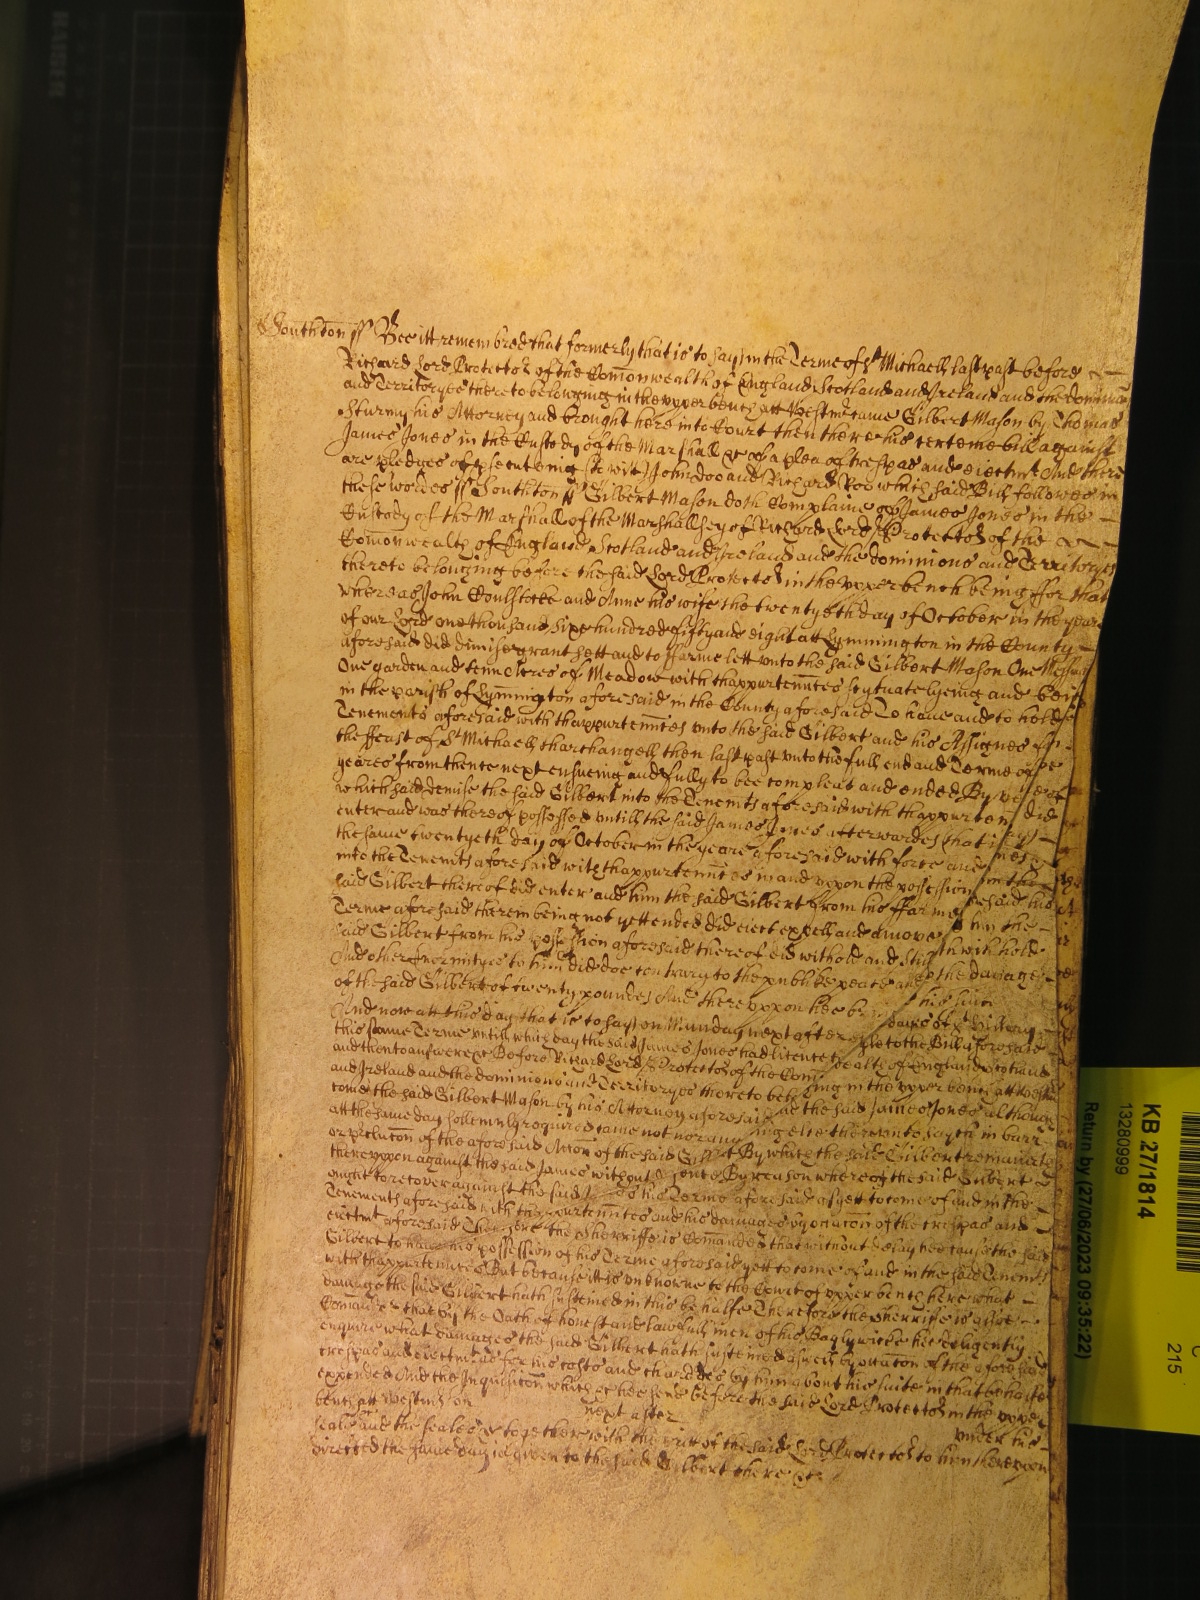 Southton ss Bee itt remembred that formerly that is to say in the Terme of St Michaell last past before
Richard Lord Protector of the Comonwealth of England Scotland and Ireland and the dominions
and Territoryes thereto belonging in the upper bench att Westmr came Gilbert Mason by Thomas
Sturmy his Attorney and brought here into Court then there his certeine bill against
James Jones in the Custody of the Marshall &c of a plea of trespas and eiectmt And there
are pledges of psecuteing sct wit John Doo and Richard Roo which said Bill followes in
these wordes ss Southton ss Gilbert Mason doth Complaine of James Jones in the
Custody of the Marshall of the Marshallsey of Richard Lord Protector of the
Comonwealth of England Scotland and Ireland and the dominions and Territoryes
thereto belonging before the said Lord Protector in the upper bench being ffor that
whereas John Coulstocke and Anne his wife the twentyeth day of October in the yeare
of our Lord one thousand sixe hundred fifty and eight att Lymmington in the County
aforesaid did dimise grant sett and to ffarme lett unto the said Gilbert Mason One Messuage
One garden and tenn Acres of Meadow with thappurtennces scytuate lyeing and being
in the parish of Lymmington aforesaid in the County aforesaid To have and to hold the
Tenements aforesaid with thappurtennces unto the said Gilbert and his Assignes from
the ffeast of St Michaell tharchangell then last past unto the full end and Terme of
yeares from thence next ensueing and fully to bee compleat and ended By vertue of
which said demise the said Gilbert into the Tenemts aforesaid with thappurtennces did
enter and was thereof possessed untill the said James Jones afterwardes that is to say
the same twentyeth day of October in the yeare aforesaid with force and Armes
into the Tenemts aforesaid with thappurtennces in and uppon the possession of the
said Gilbert thereof did enter and him the said Gilbert from his ffarme aforesaid his
Terme aforesaid therein being not yett ended did eiect expell and amove And him the
said Gilbert from his possession aforesaid thereof did withold and still doth withhold
And other enormityes to him did doe contrary to the publike peace and to the damage
of the said Gilbert of twenty poundes And thereuppon hee bringes his suite
And now att this day that is to say on Munday next after daies of St Hillary
this same Terme untill which day the said James Jones had licence to imple to the Bill aforesaid
and then to answere &c Before Richard Lord Protector of the Comonwealth of England Scotland
and Ireland and the dominions and Territoryes thereto belonging in the upper bench att Westmr
come the said Gilbert Mason by his Attorney aforesaid And the said James Jones although
att the same day sollemnly required came not nor any thing else thereunto sayth in barr
or pclucon of the aforesaid Accon of the said Gilbert By which the said Gilbert remaineth
thereuppon against the said James without defence By reason whereof the said Gilbert
ought to recover against the said James his Terme aforesaid as yett to come of and in the
Tenements aforesaid with thappurtennces and his damages by occacon of the trespas and
eiectmt aforesaid Therefore the Sherriffe is Comanded that without delay hee cause the said
Gilbert to have his possession of his Terme aforesaid yett to come of and in the said Tenemts
with thappurtennces But because itt is unknowne to the Court of upper bench here what
damage the said Gilbert hath susteined in this behalfe Therefore the Sherriffe is alsoe
Comanded that by the Oath of honest and lawfull men of his Baylywicke hee deligently
enquire what damages the said Gilbert hath susteined aswell by occacon of the aforesaid
trespas and eiectmt as for his costs and chardges by him about his suite in that behalfe
expended And the Inquisicon which &c hee send before the said Lord Protector in the upper
bench att Westmr on next after under his
seale and the seales &c together with the writt of the said Lord Protector to him thereuppon
directed the same day is given to the said Gilbert there &c
KB 27/1814
13280999
Return by (27/06/2023 09:35:22)
215